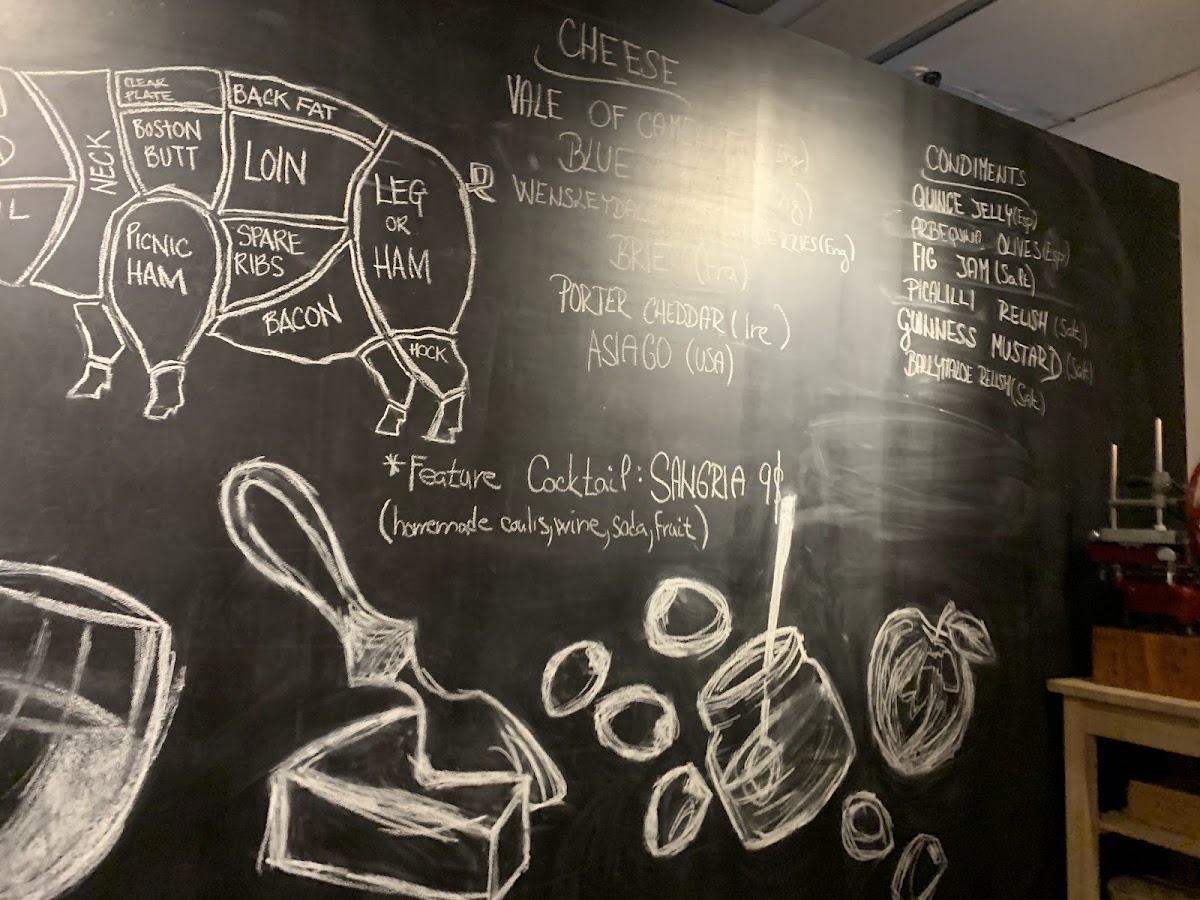 NECK
CLEAR
PLATE
BACK FAT
BOSTON
BUTT
LOIN
PICNIC
HAM
SPARE
RIBS
BACON
LEG
OR
HAM
HOCK
CHEESE
VALE OF CAMELOT
BLUE (Eng)
WENSLEYDALE
BRIE (Fra)
PORTER CHEDDAR (Ire)
ASIAGO (USA)
CONDIMENTS
QUINCE JELLY (Esp)
ARBEQUINA OLIVES (Esp)
FIG JAM (Salt)
PICALILLI RELISH (Salt)
GUINNESS MUSTARD (Salt)
RELISH (Salt)
*Feature Cocktail: SANGRIA 9$
(homemade coulis, wine, soda, fruit)